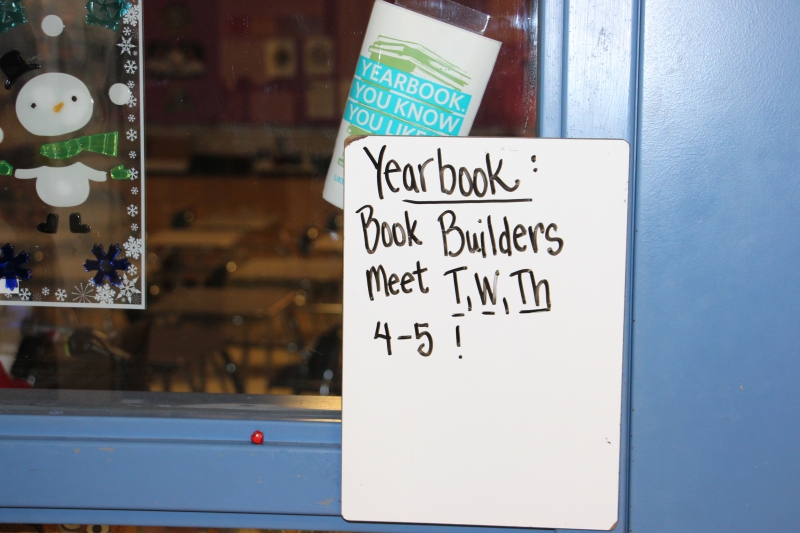 YEARBOOK.
YOU KNOW
YOU
Yearbook:
Book Builders
Meet T, W, Th
4-5 !